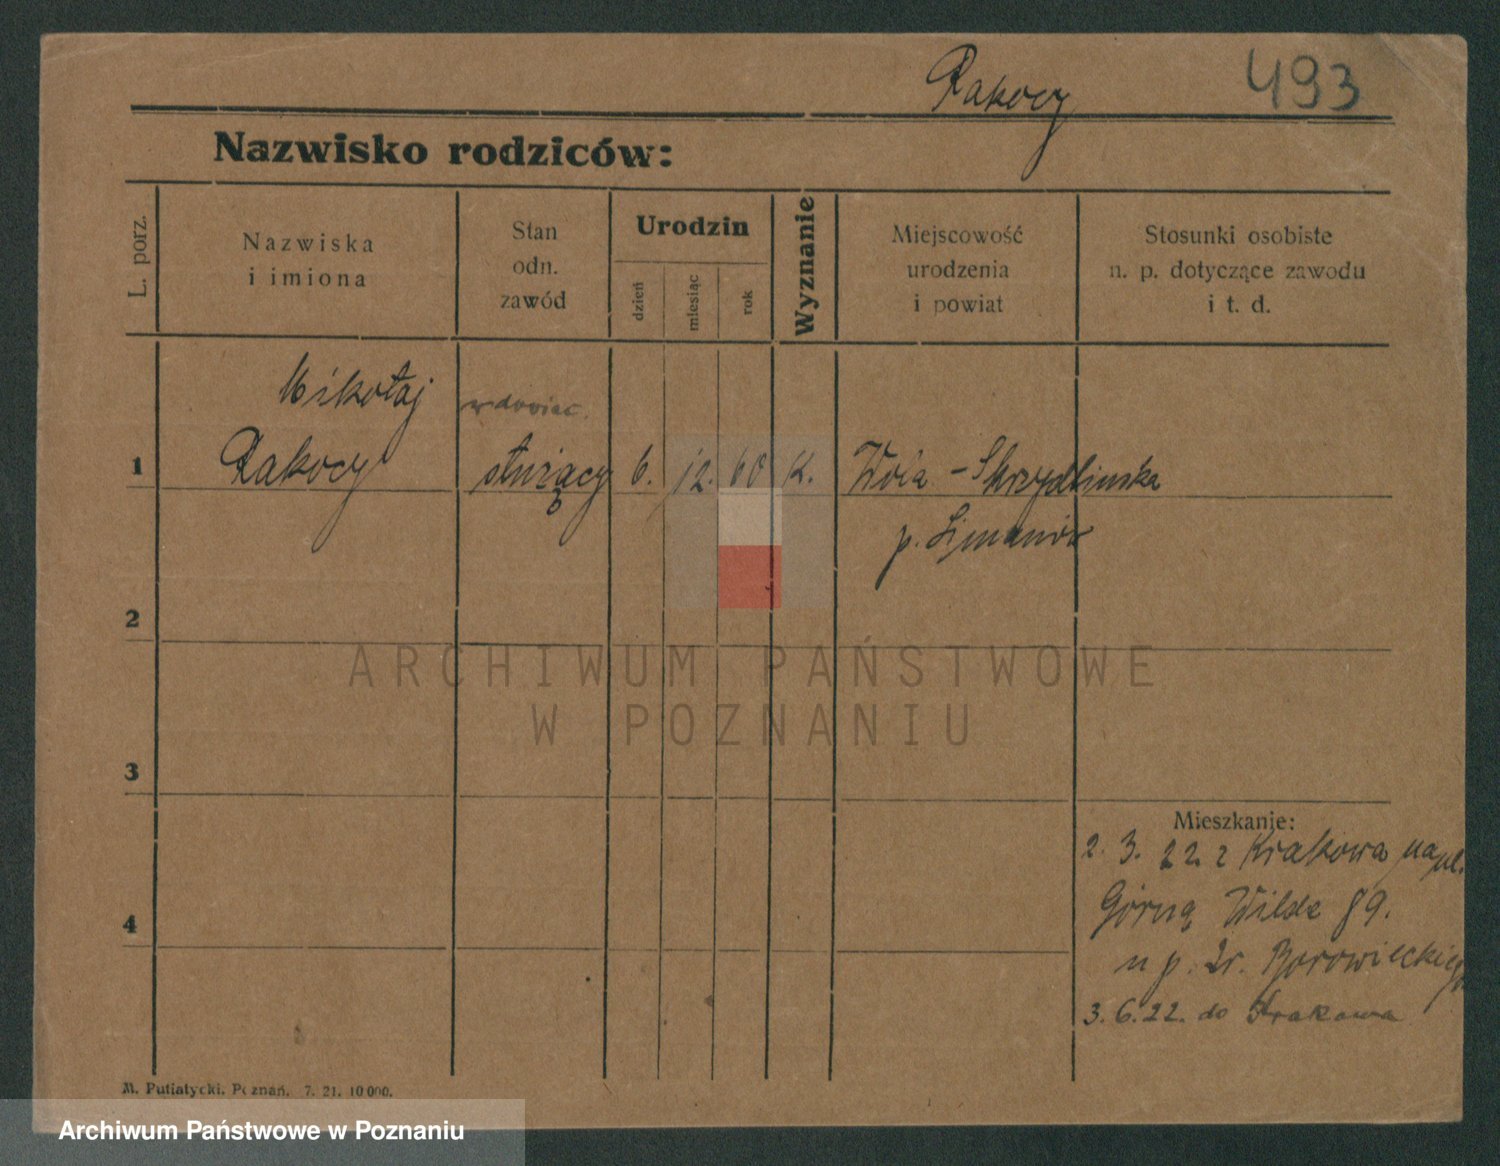 Rakocy 493
Nazwisko rodziców:
L. porz.
Nazwiska
i imiona
Stan
odn.
zawód
Urodzin
dzień
miesiąc
rok
Wyznanie
Miejscowość
urodzenia
i powiat
Stosunki osobiste
n. p. dotyczące zawodu
i t. d.
Mikołaj
Rakocy
wdowiec.
służący
1
6. 12. 60 K.
Wola - Skrzydlinska
p. Limanów
2
3
4
ARCHIWUM PAŃSTWOWE
W POZNANIU
Mieszkanie:
2. 3. 22. z Krakowa na ul.
Górną Wilde 89.
u p. Borowieckiego
3. 6. 22. do Krakowa
M. Putiatycki, Poznań. 7. 21. 10 000.
Archiwum Państwowe w Poznaniu